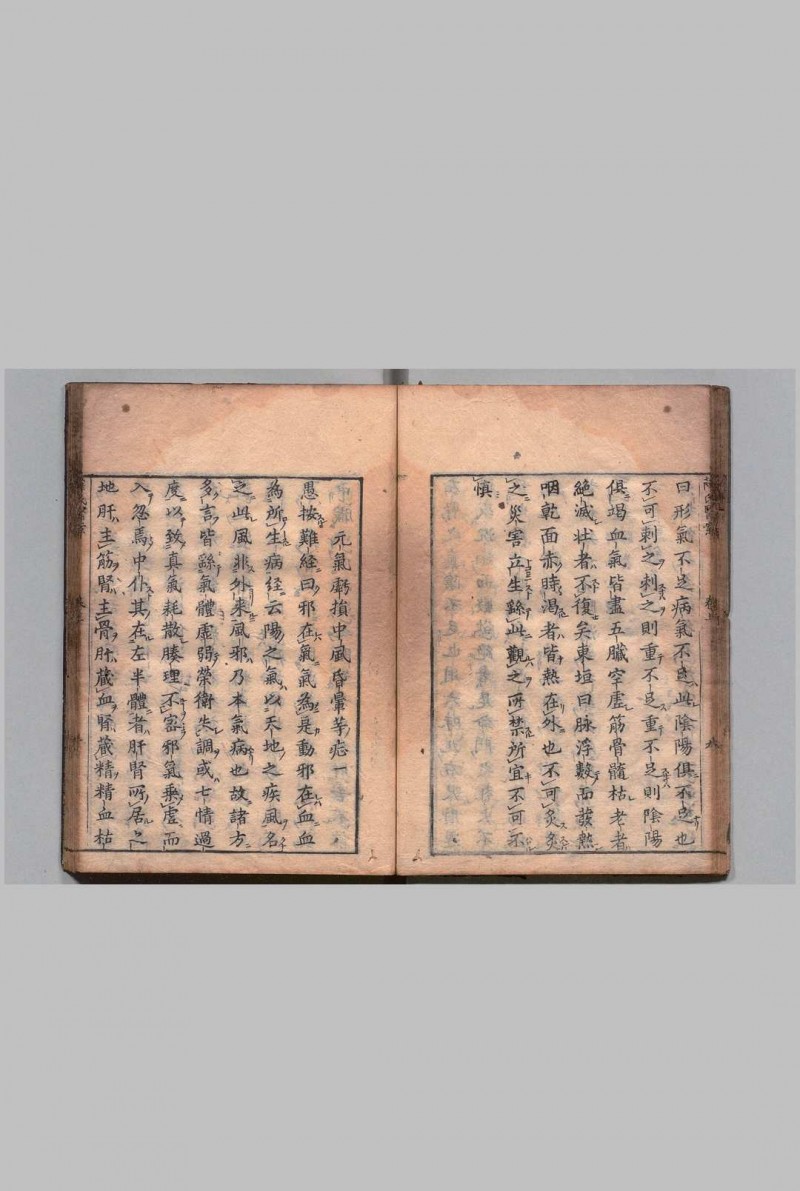 曰形氣不足病氣不足此陰陽俱不足也
不可刺之刺之則重不足重不足則陰陽
俱竭血氣皆盡五臟空虛筋骨髓枯老者
絕滅壯者不復矣東垣曰脉浮數而發熱
咽乾面赤時渴者皆熱在外也不可灸灸
之災害立生繇此觀之所禁所宜不可不
慎
元氣虧損中風昏暈等症一
愚按難經曰邪在氣氣為是動邪在血血
為所生病經云陽之氣以天地之疾風名
之此風非外來風邪乃本氣病也故諸方
多言皆繇氣體虛弱榮衛失調或七情過
度以致真氣耗散腠理不密邪氣乘虛而
入忽焉中仆其在左半體者肝腎所居之
地肝主筋腎主骨肝藏血腎藏精精血枯